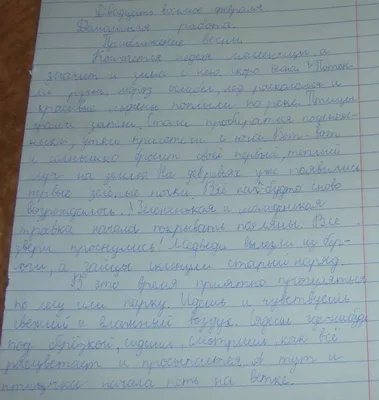 Двадцать восьмое февраля
Домашняя работа.
Приближение весны
Кончается пора масленицы, а
значит и зима с нею, скоро весна. Потек-
ли ручьи, через больший, лёд раскололся и
красивые льдины поплыли по реке. Птицы
громко запели, стали пробираться подснеж-
ники, утки прилетели с юга. Вот-вот
и солнышко бросит свой первый, тёплый
луч на землю. На деревьях уже появились
первые зелёные почки. Всё как-будто снова
возрождалось! Зелененькая и молоденькая
травка начала открывать поляны. Все
звери проснулись! Медведи вылезли из бер-
логи, а зайцы скинули старый наряд.
В это время приятно прогуляться
по лесу или парку. Идёшь и чувствуешь
свежий и влажный воздух. Сядешь где-нибудь
под берёзкой, сидишь, смотришь, как всё
расцветает и просыпается, а тут и
птички начала петь на ветке.